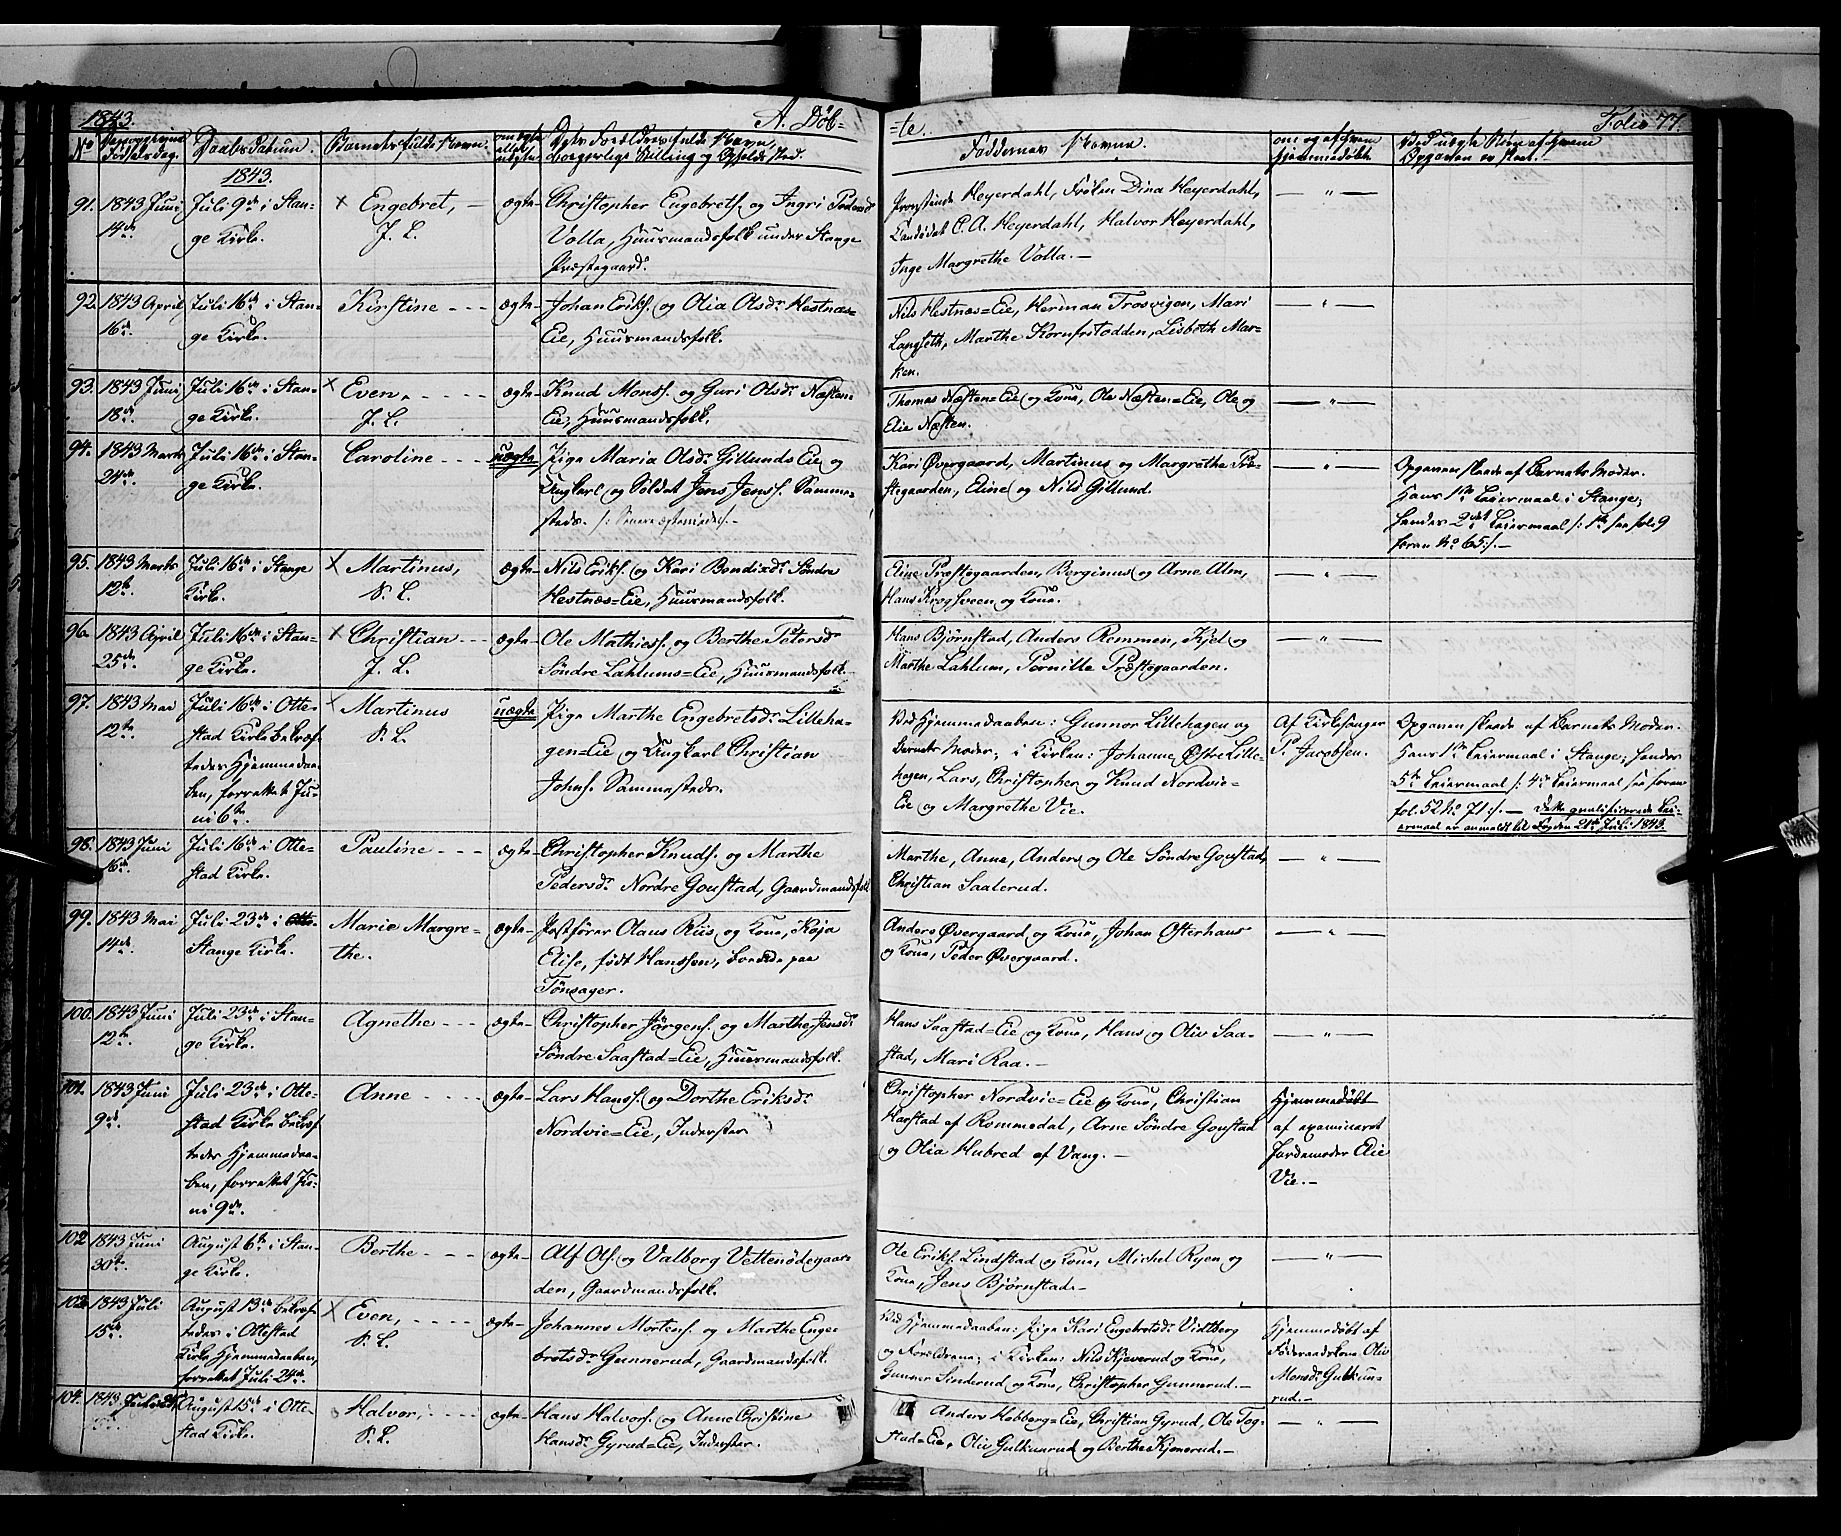 1843.
A. Døb-
-te.
Folio 77.
No
Fødselsdag.
Daabs Datum.
Barnets fulde Navn.
om ægte eller uægte
Dets Forældres fulde Navn, borgerlige Stilling og Opholdssted.
Faddernes Navne.
om og af hvem hjemmedøbt
Ved uægte Børn af hvem Opgaven er skeet.
1843.
91. 1843 Juni 14de
Juli 9de i Stan-
ge Kirke.
× Engebret,
J. L.
ægte
Christopher Engebretss. og Ingri Pedersdr
Volla, Huusmandsfolk under Stange
Præstegaard.
Provstinde Heyerdahl, Frøken Dina Heyerdahl,
Candidat C. A. Heyerdahl, Halvor Heyerdahl,
Inge Margrethe Volla.
92. 1843 April 16de
Juli 16de i Stan-
ge Kirke.
Kirstine
ægte
Johan Erikss. og Olia Olsdr Hestnæs=
Eie, Huusmandsfolk.
Nils Hestnæs=Eie, Herman Trosvigen, Mari
Langseth, Marthe Kornfristodden, Lisbeth Mar-
ken.
93. 1843 Juni 18de
Juli 16de i Stan-
ge Kirke.
× Even,
J. L.
ægte
Knud Monss. og Guri Olsdr Næsten=
Eie, Huusmandsfolk.
Thomas Næsten=Eie og Kone, Ole Næsten=Eie, Ole og
Elie Næsten.
94. 1843 Marts 24de
Juli 16de i Stan-
ge Kirke.
Caroline
uægte
Pige Maria Olsdr Gillunds Eie og
Ungkarl og Soldat Jens Jenss. Samme-
steds.
Kari Øvergaard, Martinus og Margrethe Præ-
stegaarden, Eline og Nils Gillund.
Opgaven skeede af Barnets Moder.
Hans 1ste Leiermaal i Stange,
hendes 2det Leiermaal /: 1ste see fol: 9
foran No 65 :/.
95. 1843 Marts 12te
Juli 16de i Stange
Kirke.
× Martinus,
S. L.
ægte
Nils Erikss. og Kari Bendixdr Søndre
Hestnæs=Eie, Huusmandsfolk.
Eline Præstegaarden, Berginus og Arne Alm,
Hans Krogsveen og Kone.
96. 1843 April 25de
Juli 16de i Stan-
ge Kirke.
× Christian
J. L.
ægte
Ole Mathiess. og Berthe Petersdr
Søndre Lahlums=Eie, Huusmandsfolk.
Hans Bjørnstad, Anders Remmen, Kjel og
Marthe Lahlum, Pernille Præstegaarden.
97. 1843 Mai 12te
Juli 16de i Otte-
stad Kirke bekræf-
tedes Hjemmedaa-
ben, forrettet Ju-
ni 6te
× Martinus
S. L.
uægte
Pige Marthe Engebretsdr Lilleha-
gen=Eie og Ungkarl Christian
Johns. Sammesteds.
Ved Hjemmedaaben: Gunnor Lillehagen og
Barnets Moder; i Kirken: Johanne Østre Lille-
hagen, Lars, Christopher og Knud Nordvie=
Eie og Margrethe Vie.
Af Kirkesanger
P. Jacobsen.
Opgaven skeede af Barnets Moder.
Hans 1ste Leiermaal i Stange; hendes
5te Leiermaal /: 4de Leiermaal see foran
fol. 52 No 71 :/. Dette qualificerede Lei-
ermaal er anmeldt til Fogden 21de Juli 1843.
98. 1843 Juni 16de
Juli 16de i Otte-
stad Kirke.
Pauline
ægte
Christopher Knudss. og Marthe
Pedersdr Nordre Goustad, Gaardmandsfolk
Marthe, Anne, Anders og Ole Søndre Goustad,
Christian Saalerud.
99. 1843 Mai 14de
Juli 23de i
Stange Kirke.
Marie Margre-
the.
ægte
Postfører Olaus Riis og Kone, Kaja
Elise, født Hanssen, boende paa
Tønsager.
Anders Øvergaard og Kone, Johan Osterhaus
og Kone, Peder Øvergaard.
100. 1843 Juni 12te
Juli 23de i Stan-
ge Kirke.
Agnethe
ægte
Christopher Jørgenss. og Marthe Jensdr
Søndre Saastad=Eie, Huusmandsfolk.
Hans Saastad=Eie og Kone, Hans og Oliv Saa-
stad, Mari Raa.
101. 1843 Juni 9de
Juli 23de i Otte-
stad Kirke bekræf-
tedes Hjemmedaa-
ben, forrettet Ju-
ni 9de.
Anne
ægte
Lars Hanss. og Dorthe Eriksdr
Nordvie=Eie, Inderster.
Christopher Nordvie=Eie og Kone, Christian
Harstad af Rommedal, Arne Søndre Goustad
og Olia Hubred af Vang.
Hjemmedøbt
af examineret
Jordemoder Elie
Vie.
102. 1843 Juni 30te
August 6te i Stan-
ge Kirke.
Berthe
ægte
Alf Ols. og Valborg Vettenødegaar-
den, Gaardmandsfolk.
Ole Erikss. Lindstad og Kone, Michel Ryen og
Kone, Jens Bjørnstad.
103. 1843 Juli 15de
August 13de bekræf-
tedes i Ottestad
Kirke Hjemmedaaben,
forrettet Juli 24de.
× Even,
S. L.
ægte
Johannes Mortenss. og Marthe Enge-
bretsdr Gunnerud, Gaardmandsfolk.
Ved Hjemmedaaben: Pige Kari Engebretsdr Vidtberg
og Forældrene; i Kirken: Nils Kjeverud og Kone,
Gunner Sinderud og Kone, Christopher Gunnerud.
Hjemmedøbt af
Føderaadskone Oliv
Monsdr Gulkun-
rud.
104. 1843
August 15de i Otte-
stad Kirke.
Halvor,
S. L.
ægte
Hans Halvorss. og Anne Christine
Hansdr Gyrud=Eie, Inderster.
Anders Hobberg=Eie, Christian Gyrud, Ole Tog-
stad=Eie, Oliv Gulkunrud og Berthe Kjonerud.